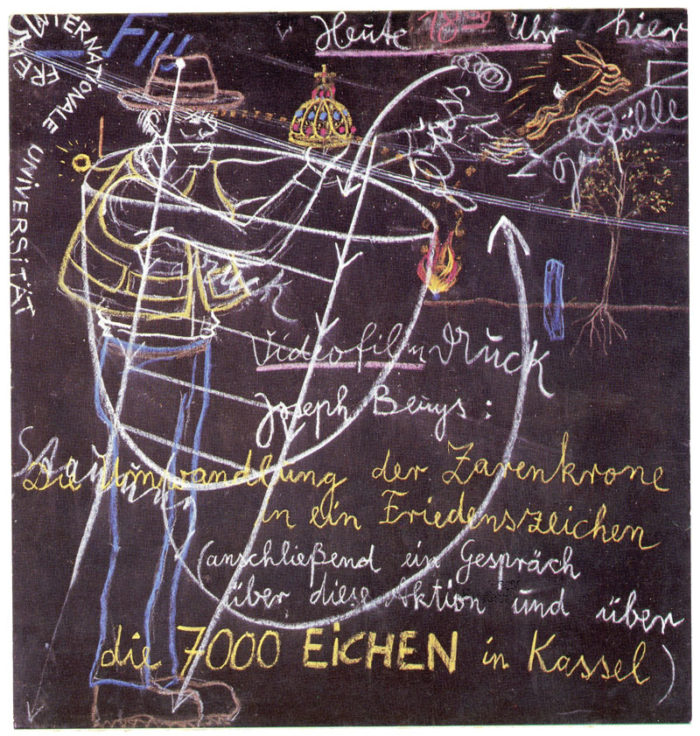 Heute 18 Uhr hier
Fiu
FREIE INTERNATIONALE UNIVERSITÄT
Videofilmdruck
Joseph Beuys:
Die Umwandlung der Zarenkrone
in ein Friedenszeichen
(anschließend ein Gespräch
über diese Aktion und über
die 7000 EICHEN in Kassel)